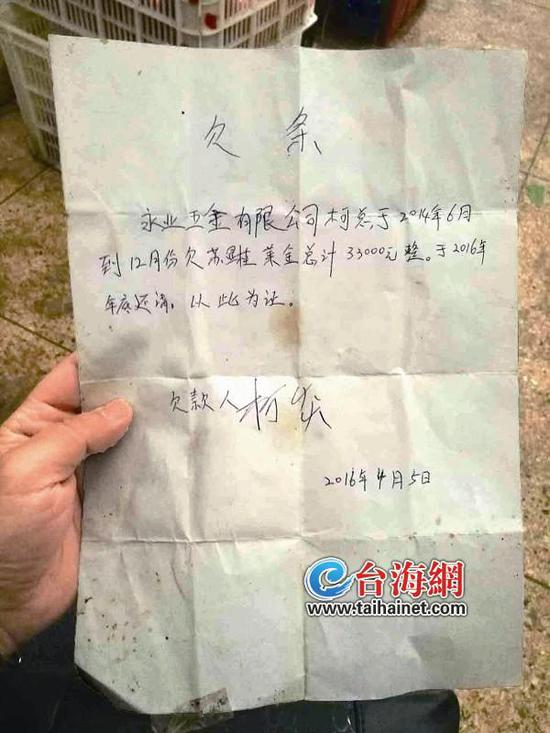 欠条
永业五金有限公司柯总于2014年6月
到12月份欠苏显桂菜金总计33000元整。于2016年
年底还清，以此为证。
欠款人柯
2016年4月5日
台海網
www.taihainet.com